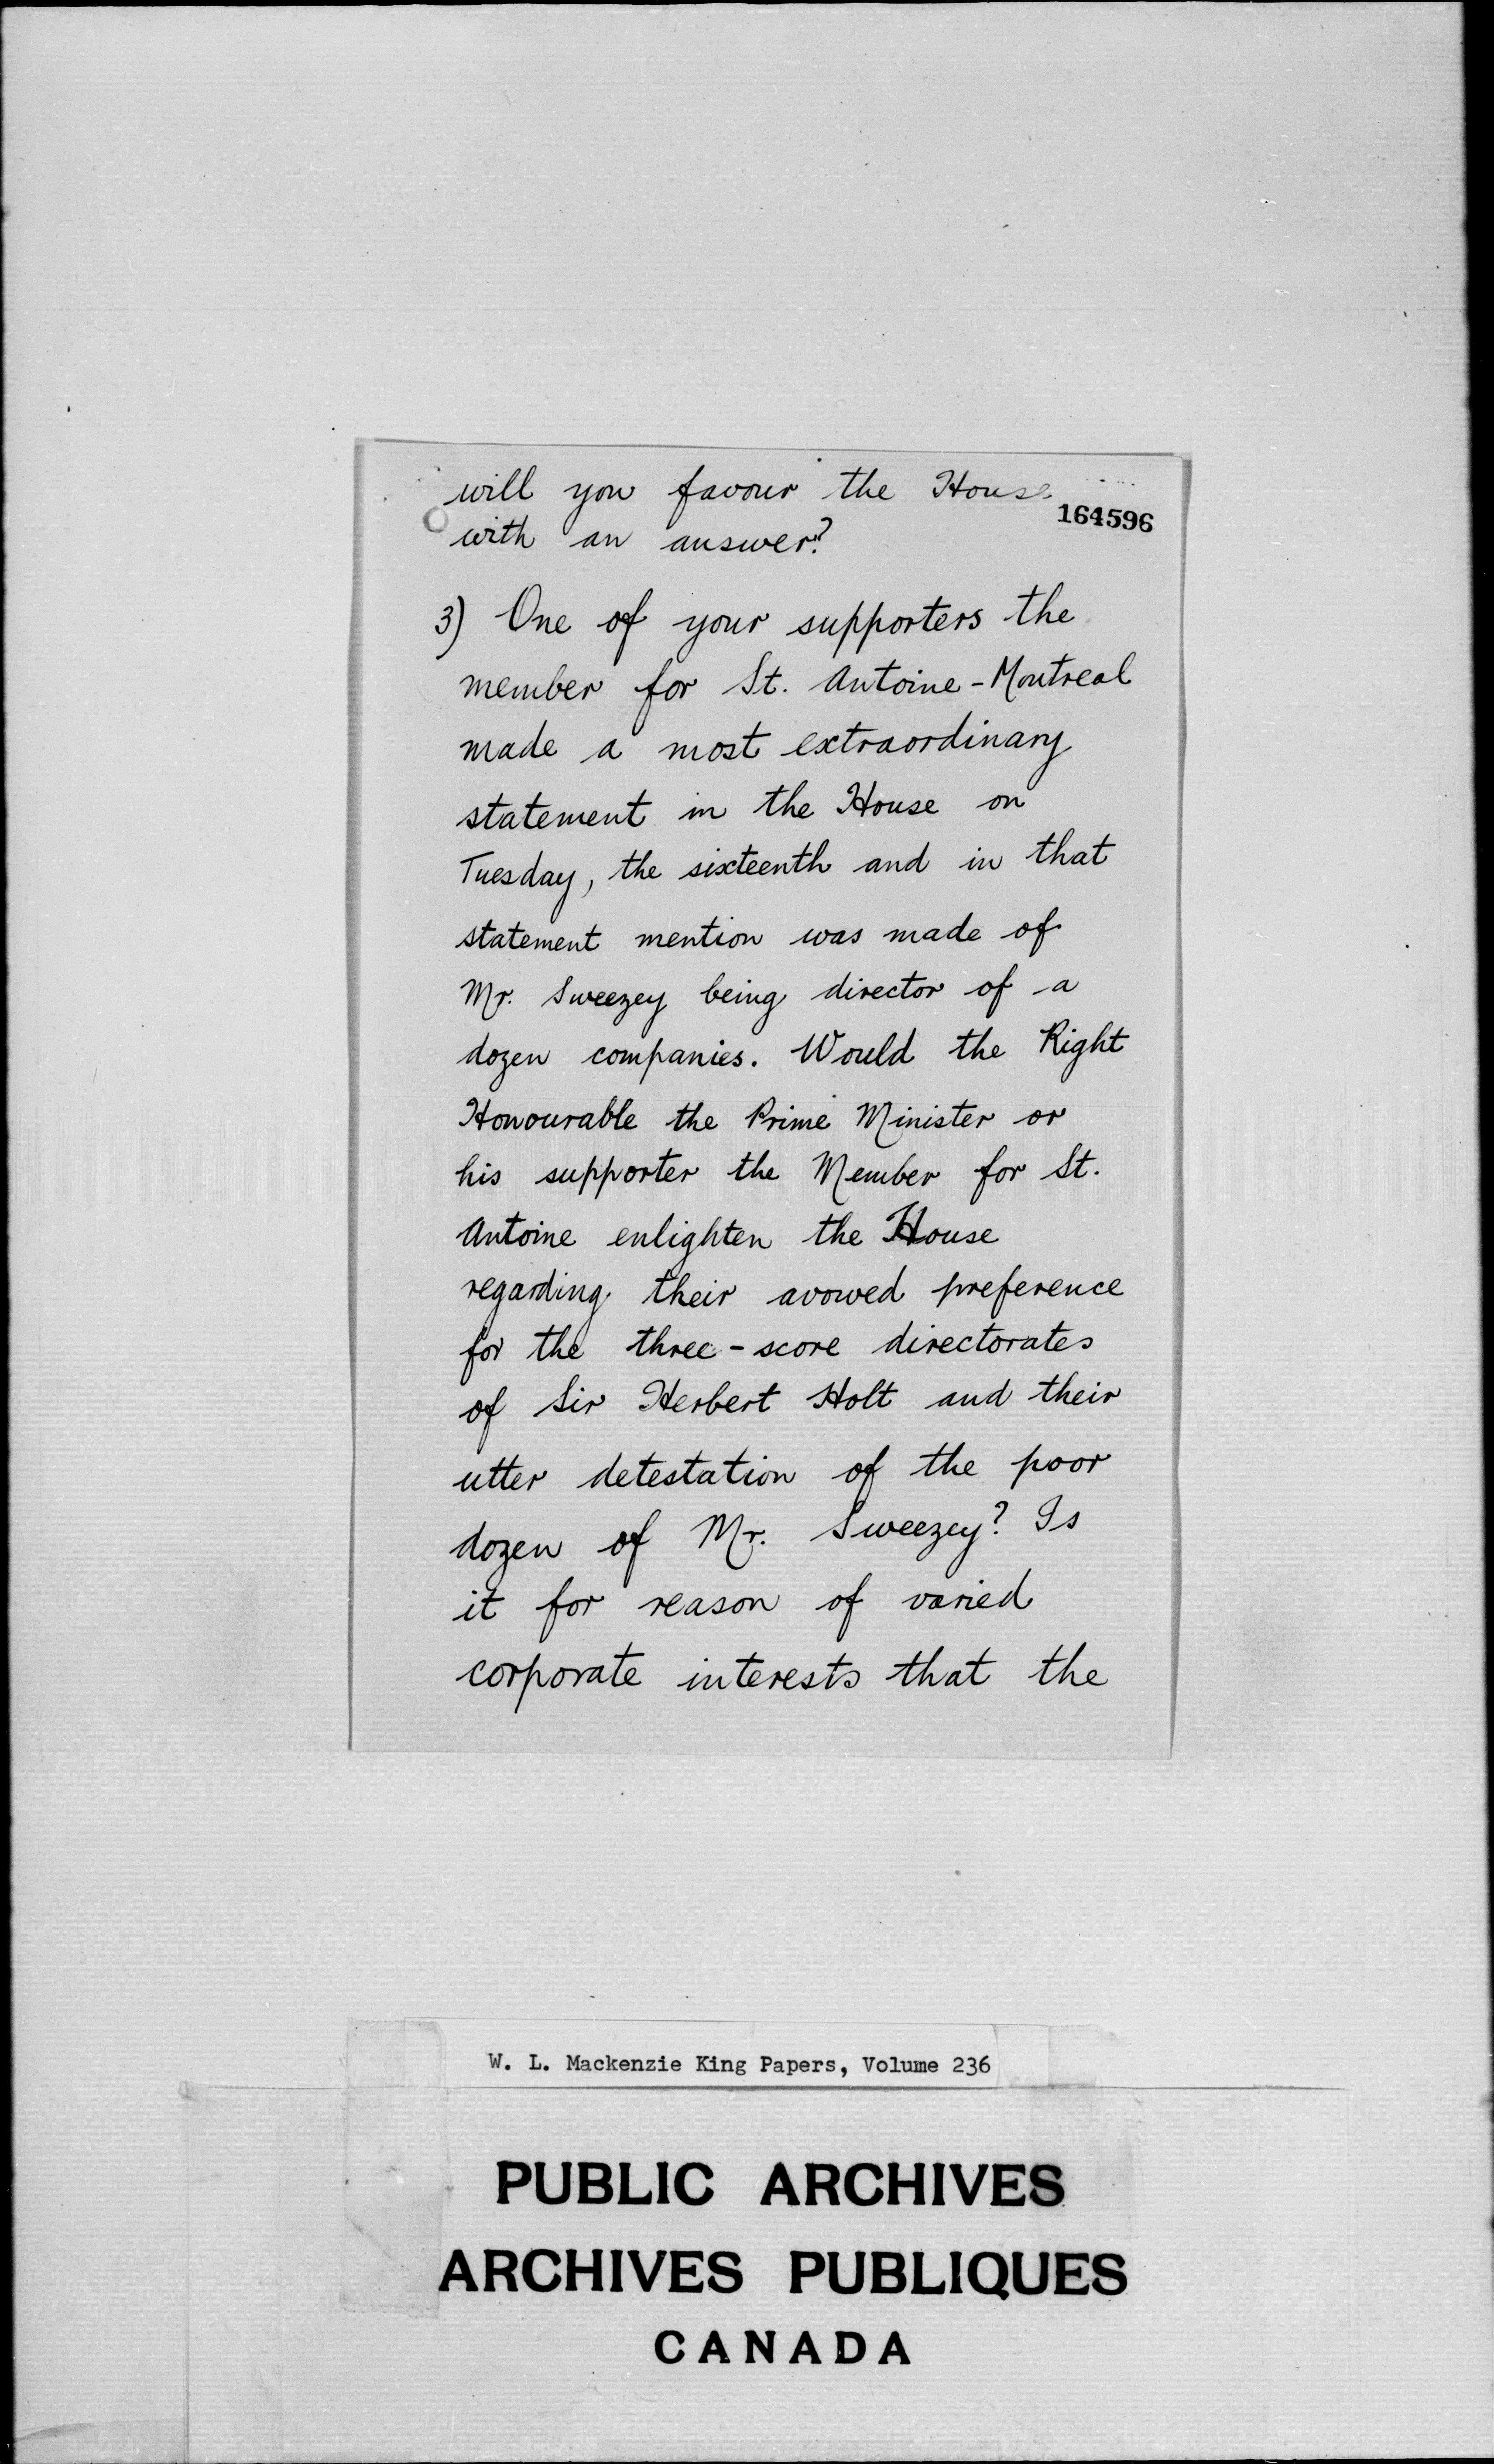 will you favour the House
164596
with an answer?
3) One of your supporters the
member for St. Antoine-Montreal
made a most extraordinary
statement in the House on
Tuesday, the sixteenth and in that
statement mention was made of
Mr. Sweezey being director of a
dozen companies. Would the Right
Honourable the Prime Minister or
his supporter the Member for St.
Antoine enlighten the House
regarding their avowed preference
for the three-score directorates
of Sir Herbert Holt and their
utter detestation of the poor
dozen of Mr. Sweezey? Is
it for reason of varied
corporate interests that the
W. L. Mackenzie King Papers, Volume 236
PUBLIC ARCHIVES
ARCHIVES PUBLIQUES
CANADA